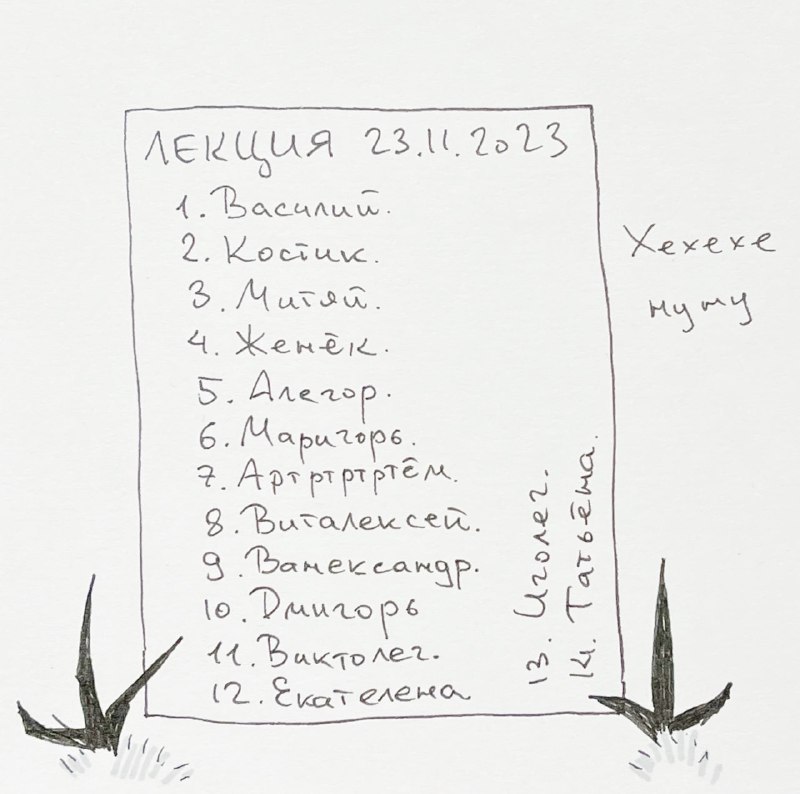 ЛЕКЦИЯ 23.11.2023
1. Василий.
2. Костик.
3. Митяй.
4. Женёк.
5. Алегор.
6. Маригорь.
7. Артртртртём.
8. Виталексей.
9. Ванександр.
10. Дмигорь
11. Виктолег.
12. Екателена
13. Иголег.
14. Татьёна.
Хехехе
нуну